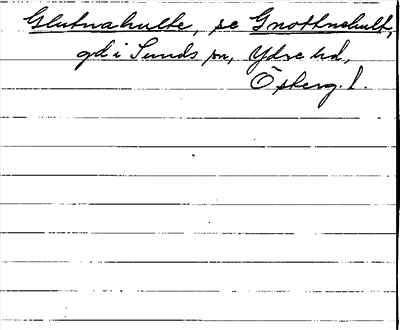 Glutnahulte, se Gnottnehult,
gd i Sunds sn, Ydre hd,
Österg. l.